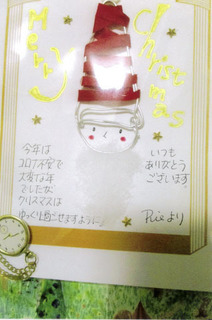 Merry
Christmas
今年は
コロナ不安で
大変な年
でしたね
クリスマスは
ゆっくり過ごせますように。
いつも
ありがとう
ございます。
より